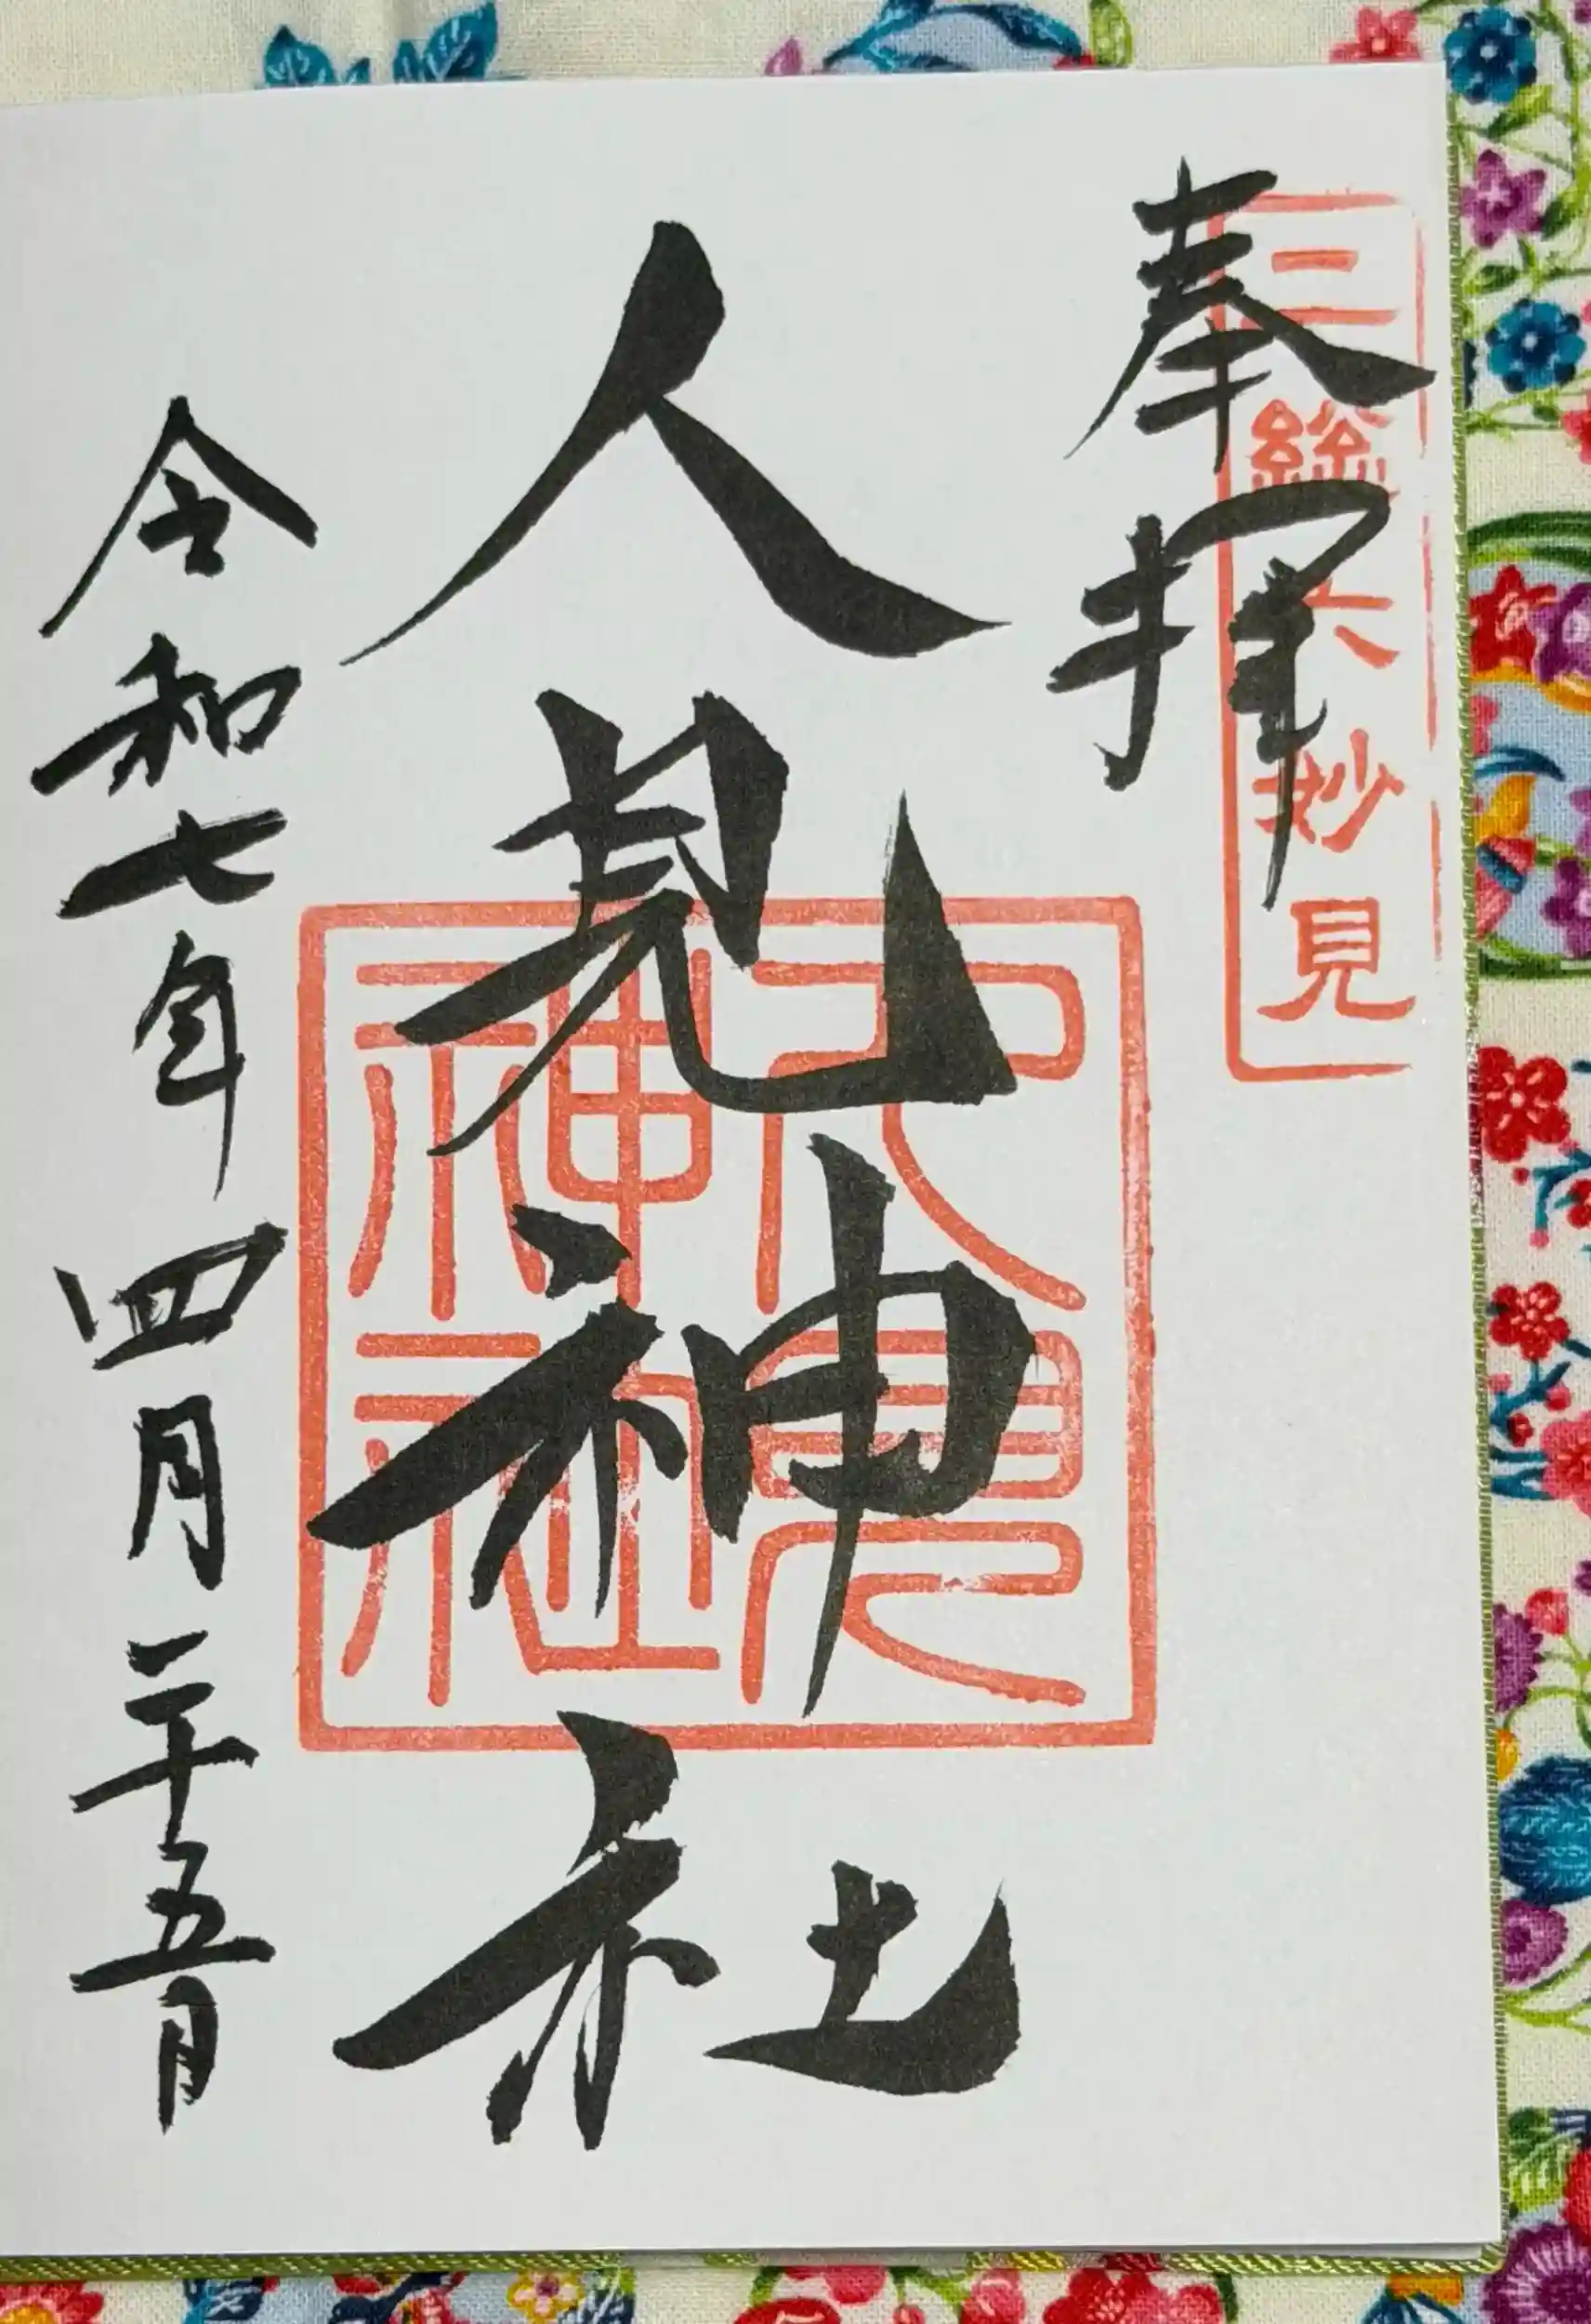 二総六妙見
奉拝
人見神社
人見神社
令和七年四月二十五日